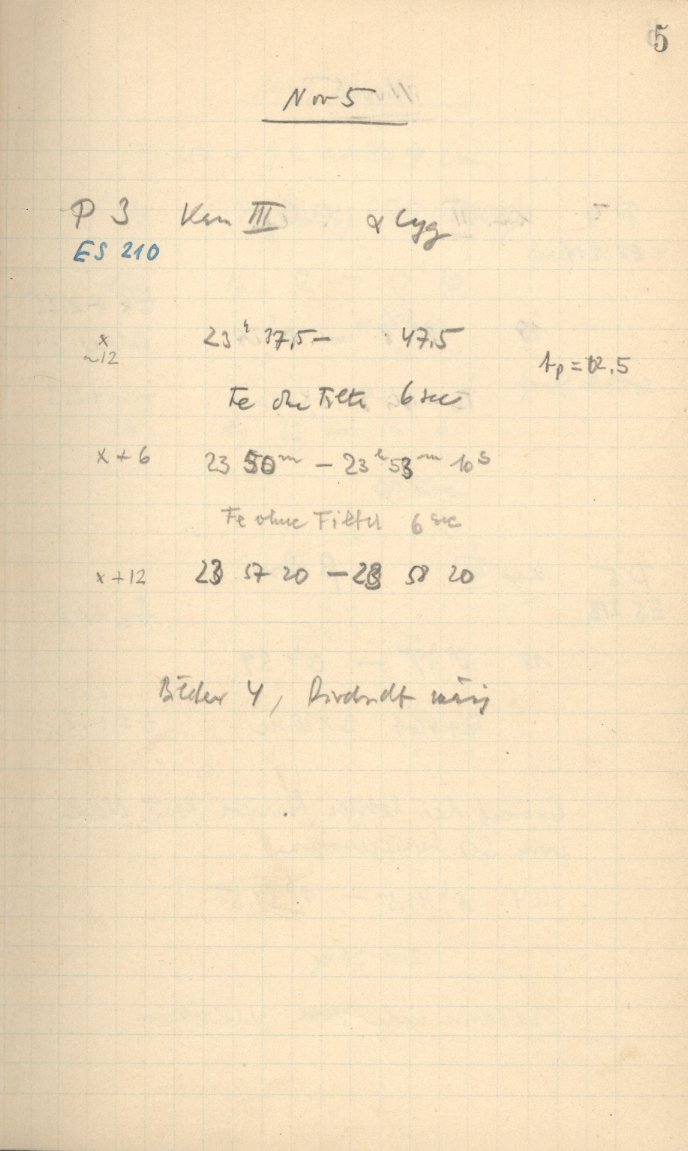 5
Nov 5
P 3 Kam III α Cyg
ES 210
x 23h 37,5 – 47,5
~12 tp = 12.5
Fe ohne Filter 6 sec
x + 6 23 50m – 23h 53m 10s
Fe ohne Filter 6 sec
x + 12 23 57 20 – 23 58 20
Bilder 4, Durchsicht mäßig